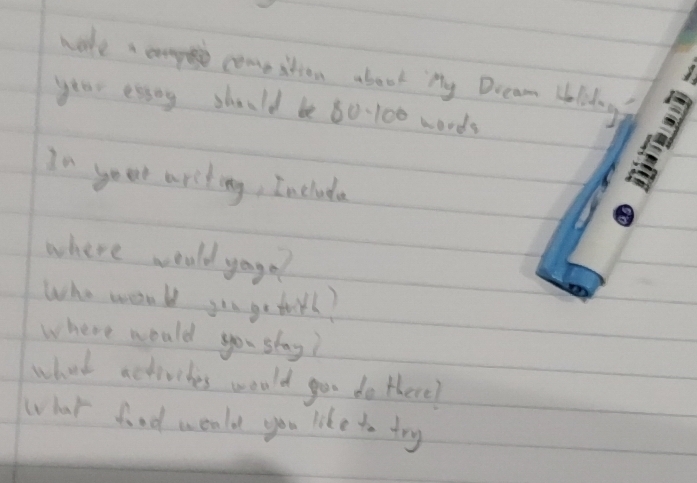 Write a composition about "My Dream Holiday"
your essay should be 80-100 words
In your writing, Include
where would you go?
Who would you go with?
Where would you stay?
What activities would you do there?
What food would you like to try
0.5